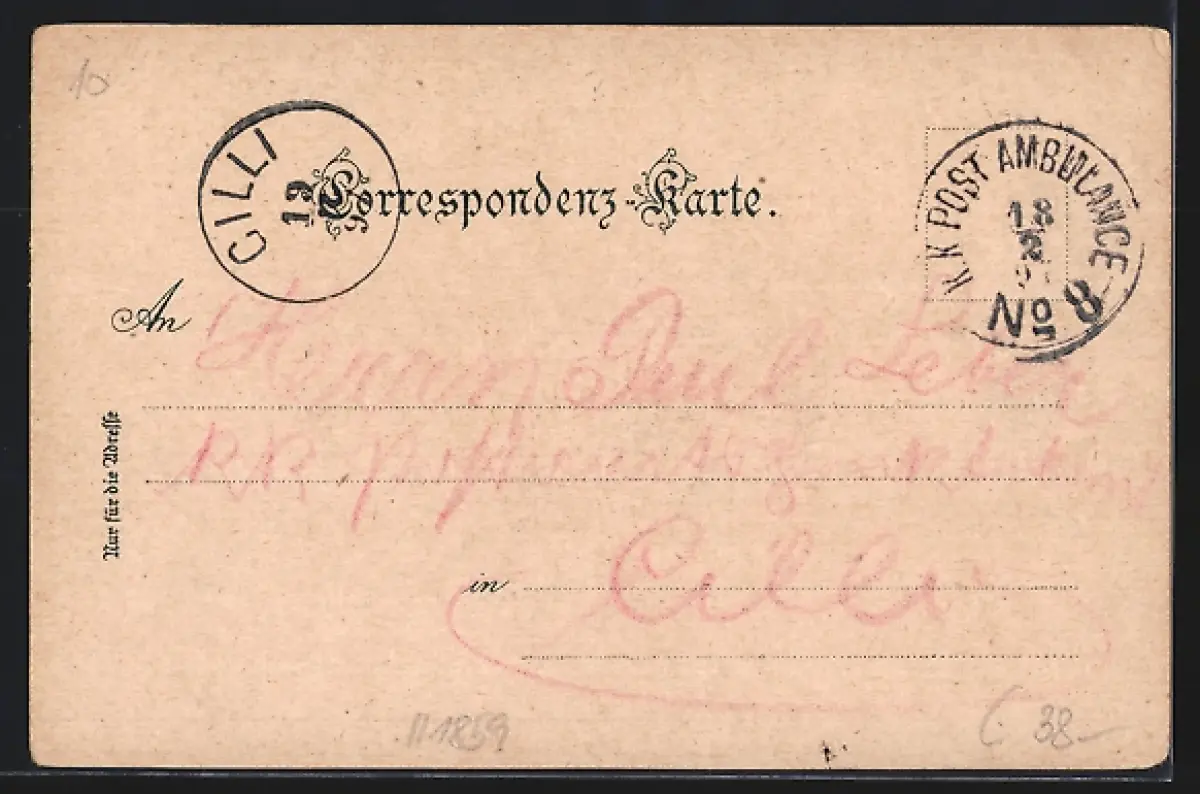 10
CILLI
12
Correspondenz-Karte.
K.K. POST AMBULANCE
18
2
No 8
An
Herrn Paul
Nur für die Adresse
in Cilli
111859
38-